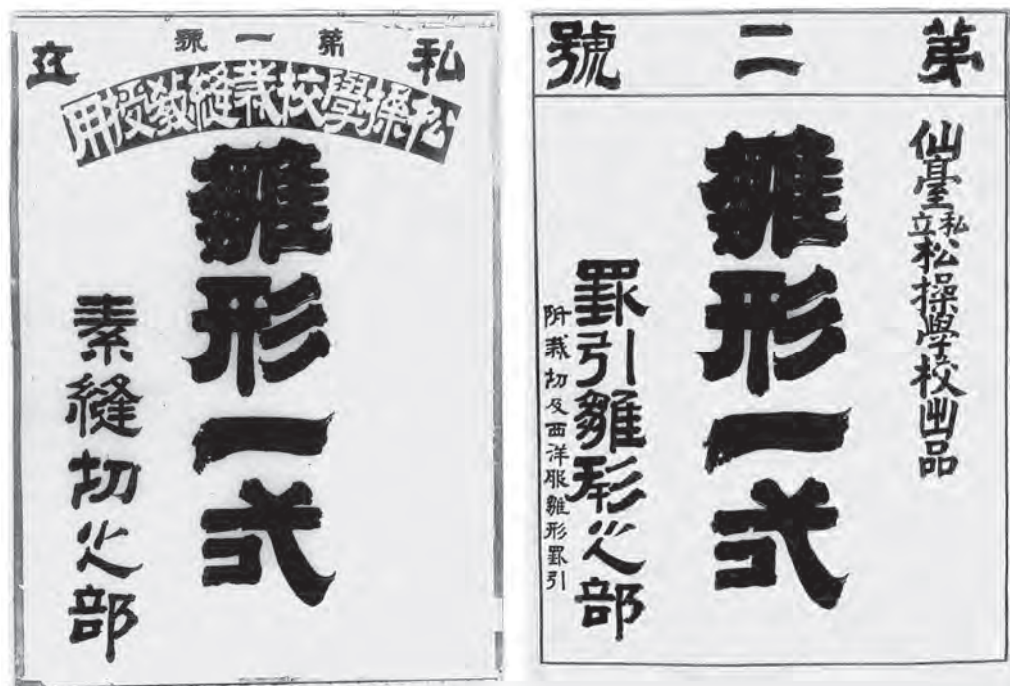 第一號
私立
松操學校裁縫敎授用
雛形一式
素縫切之部
第二號
仙臺私立松操学校出品
雛形一式
罫引雛形之部
附裁切及西洋服雛形罫引